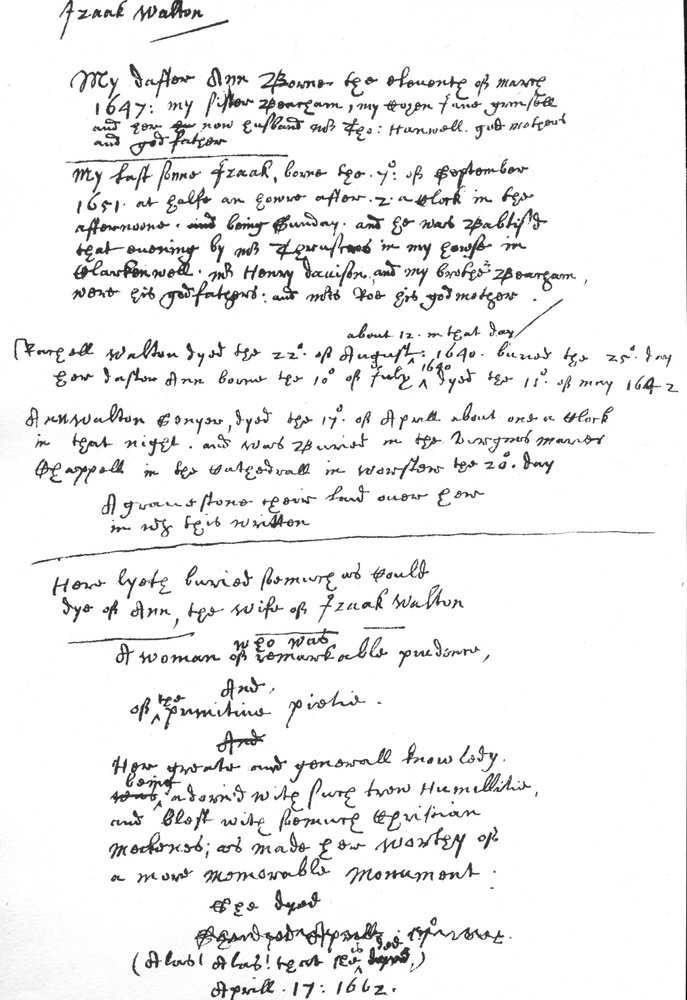 Izaak Walton
My dafter Ann Borne the eleventh of march
1647: my sister Beacham, my Cozen Jane grinsell
and her now husband mr Tho: Hanwell. god mothers
and god father
My last sonne Izaak, borne the .7o. of September
1651. at halfe an howre after .2. a Clock in the
afternoone. and being Sunday. and he was Baptis'd
that evening by mr Thruscros in my howse in
Clarkenwell. mr Henry Davison, and my brother Beacham,
were his godfathers: and mrs Roe his godmother.
about 12. in that day
Rachell Walton dyed the 22o. of August: 1640. buried the 25o. day
her dafter Ann borne the 10o of July 1640 dyed the 11o. of may 1642
Ann Walton Senyer, dyed the 17o. of Aprill about one a Clock
in that night. and was Buried in the Virgins maries
Chappell in the Cathedrall in Worster the 20o. day
A gravestone their laid over her
in wch this written
Here lyeth buried somuch as Could
dye of Ann, the Wife of Izaak Walton
who was
A woman of remarkable prudence,
And,
of the primitive pietie.
And
Her greate and generall knowledg.
being
was adorn'd with such trew Humillitie,
and blest with somuch Chrisian
meekenes; as made her worthy of
a more memorable Monument.
She dyed
(Alas! Alas! that she is ded,)
Aprill .17: 1662.